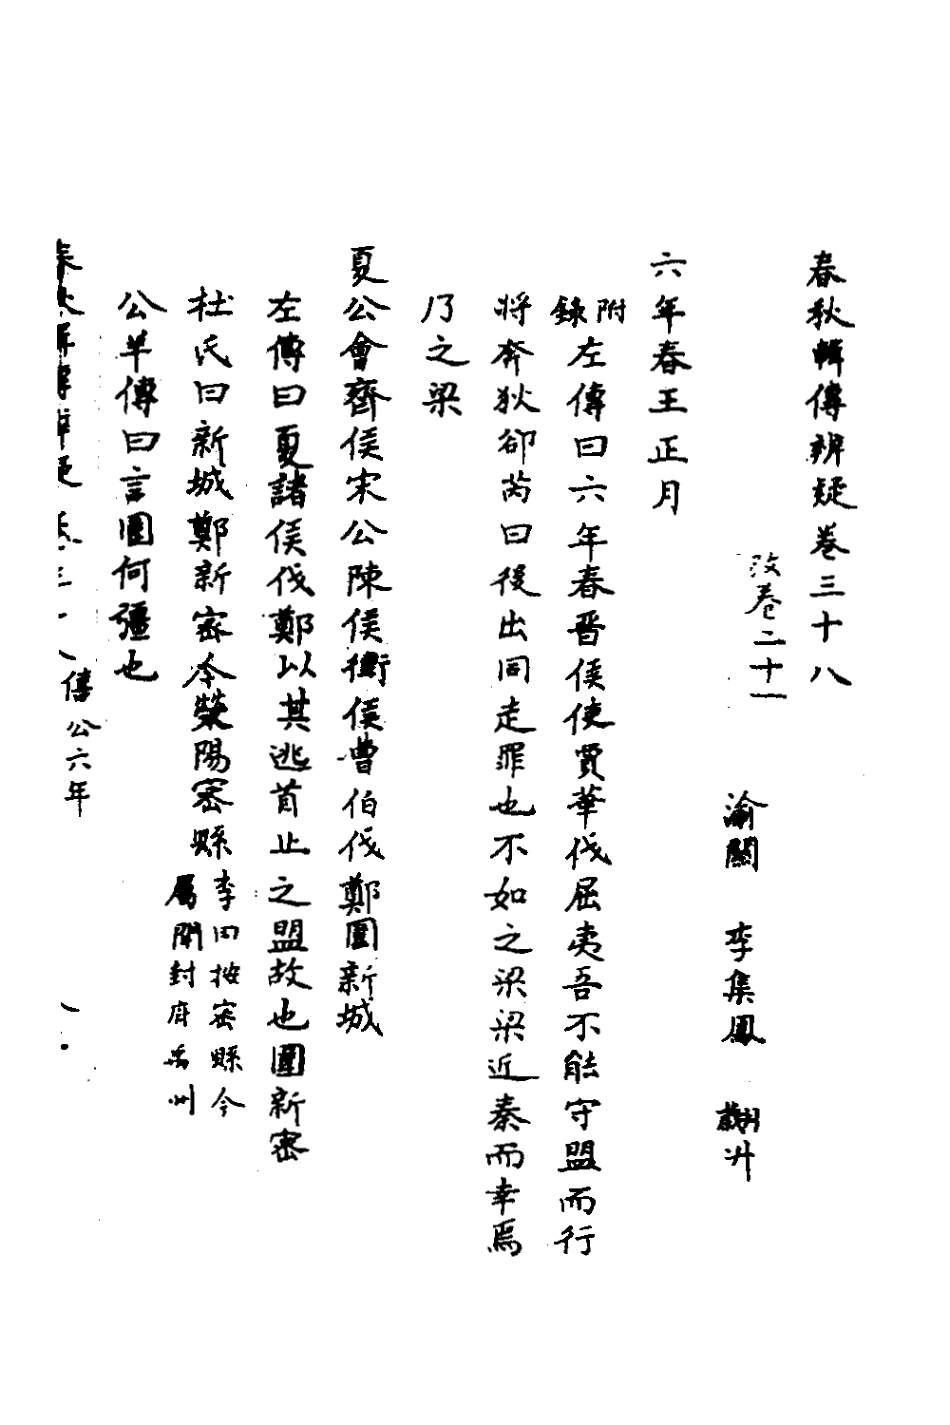 春秋輯傳辨疑卷三十八
改卷二十一
渝關　李集鳳　翽升
六年春王正月
附錄左傳曰六年春晉侯使賈華伐屈夷吾不能守盟而行
將奔狄郤芮曰後出同走罪也不如之梁梁近秦而幸焉
乃之梁
夏公會齊侯宋公陳侯衛侯曹伯伐鄭圍新城
左傳曰夏諸侯伐鄭以其逃首止之盟故也圍新密
杜氏曰新城鄭新密今滎陽密縣李曰按密縣今屬開封府禹州
公羊傳曰言圍何彊也
春秋輯傳辨疑　卷三十八　僖公六年